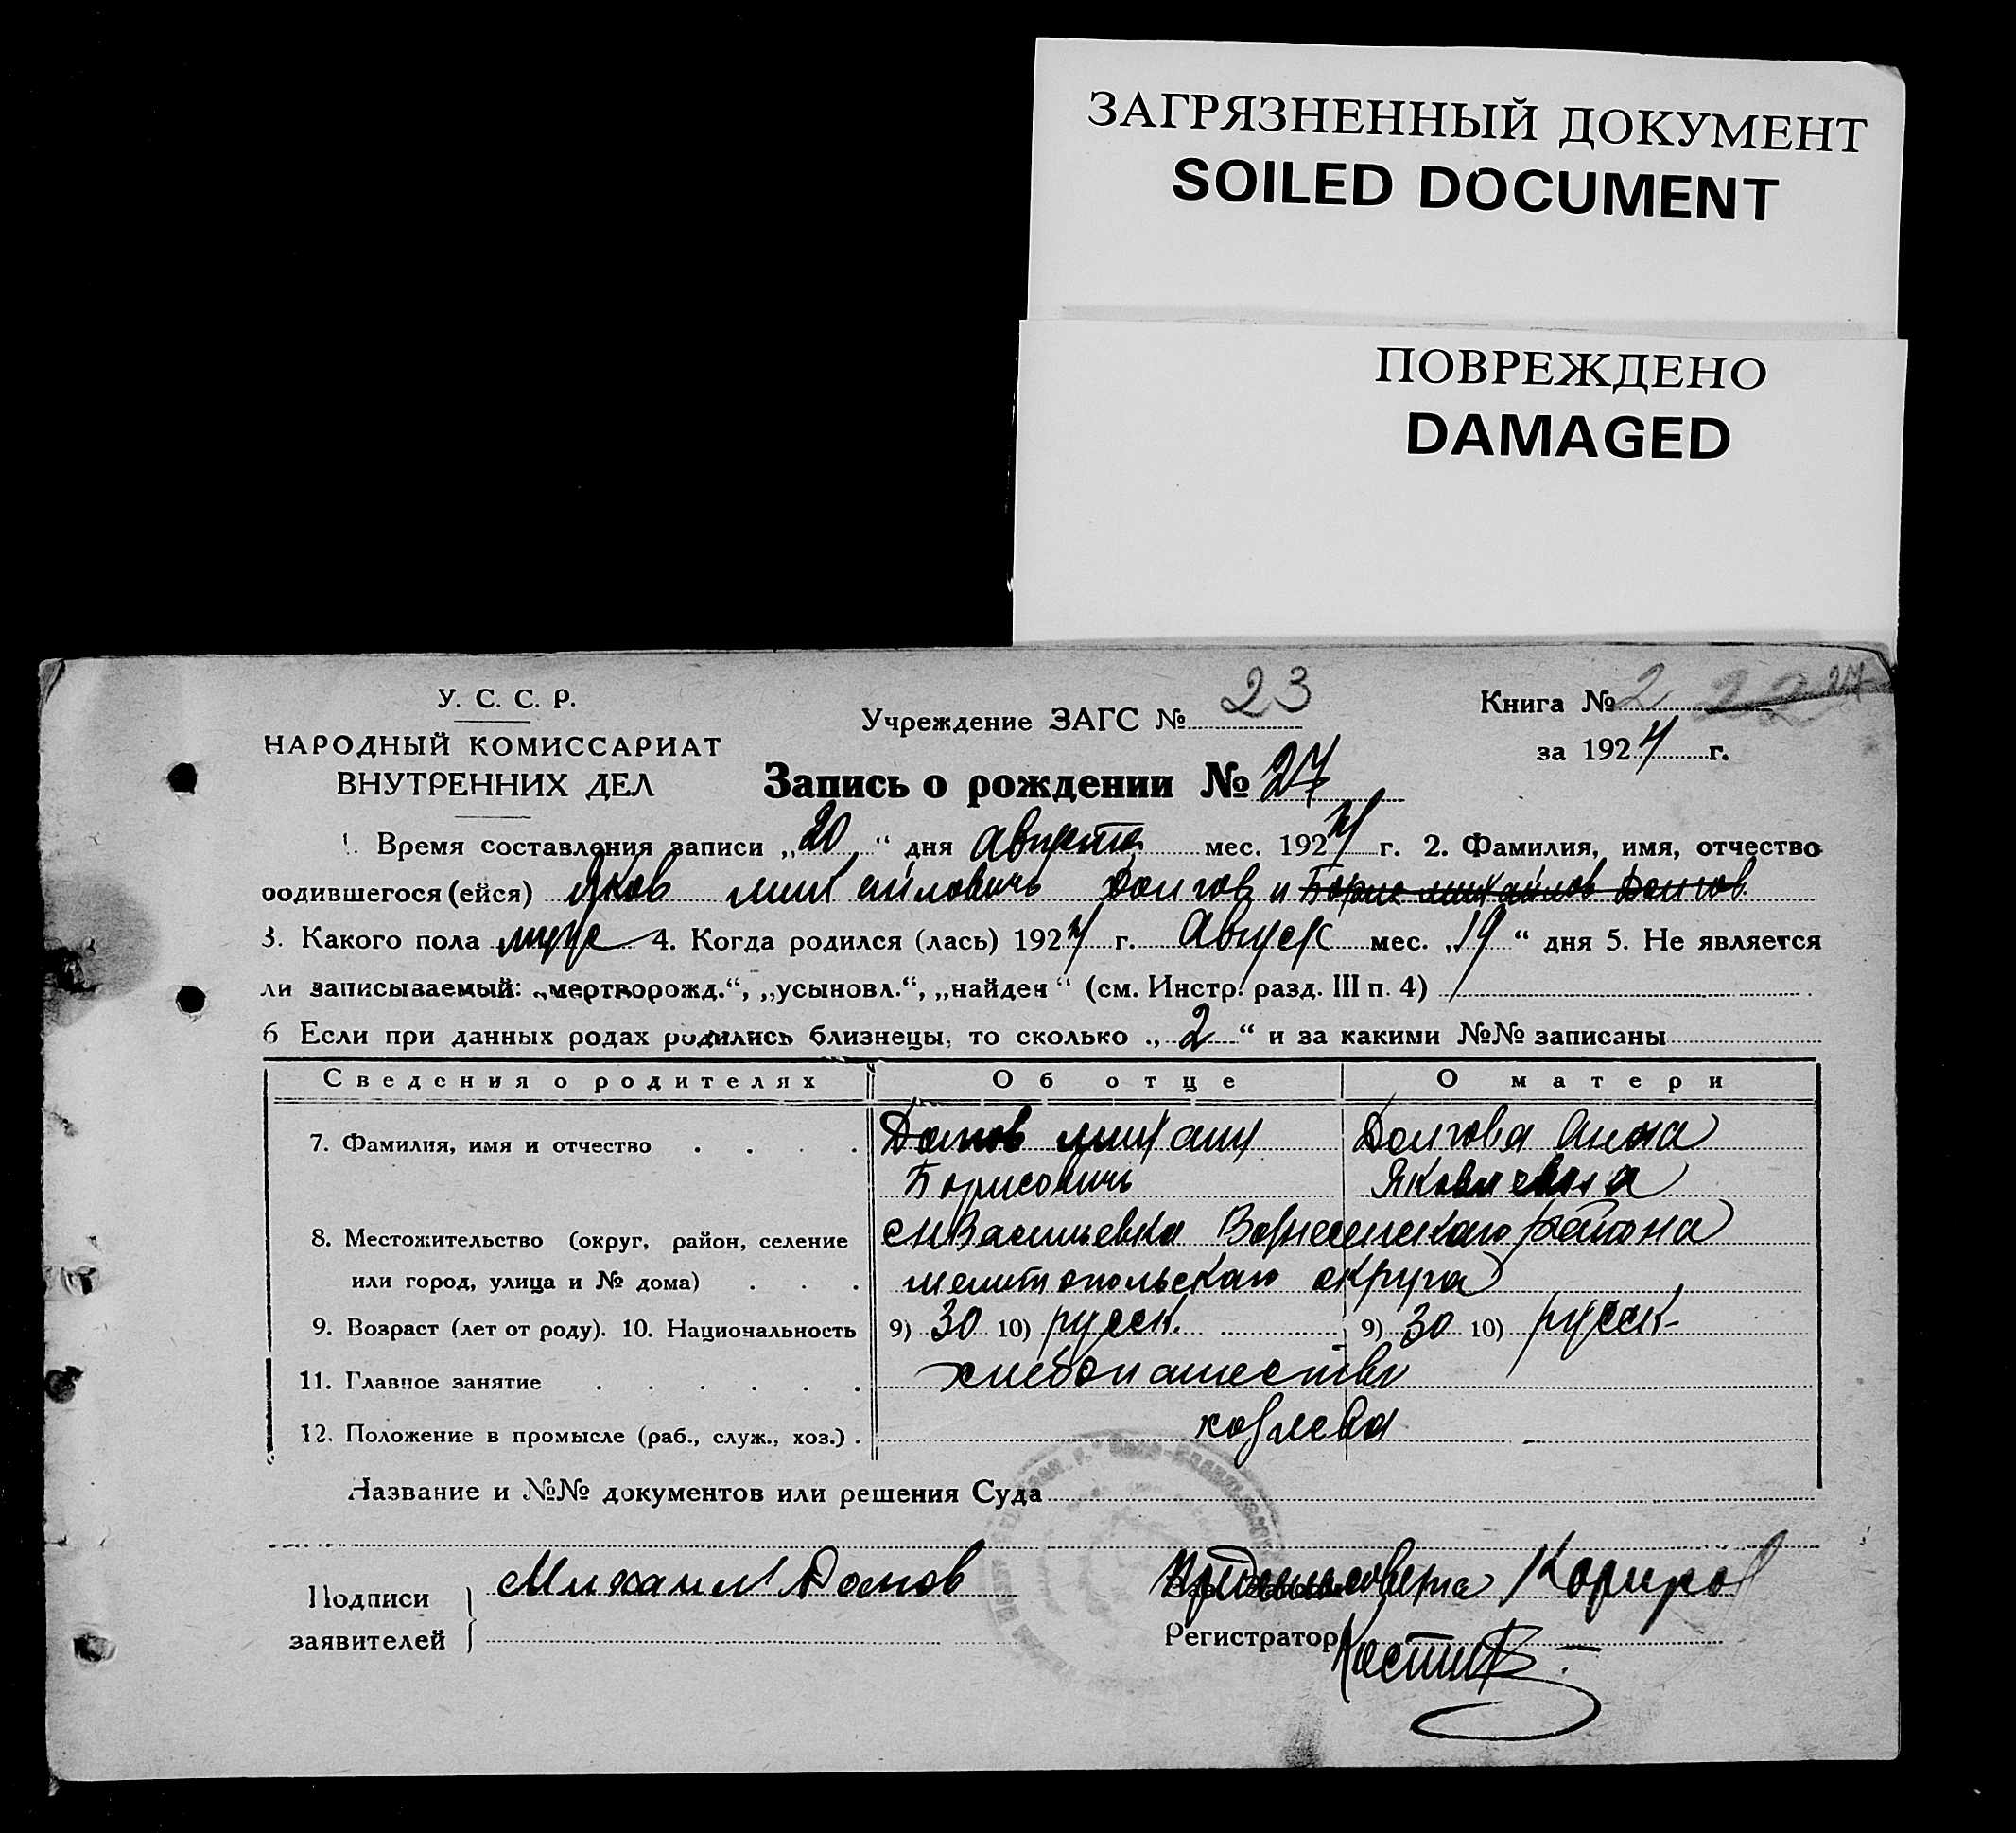 ЗАГРЯЗНЕННЫЙ ДОКУМЕНТ
SOILED DOCUMENT
ПОВРЕЖДЕНО
DAMAGED
У. С. С. Р.
НАРОДНЫЙ КОМИССАРИАТ
ВНУТРЕННИХ ДЕЛ
Учреждение ЗАГС № 23
Книга № 2 22 27
за 1924 г.
Запись о рождении № 27
1. Время составления записи „20“ дня Августа мес. 1924 г. 2. Фамилия, имя, отчество
родившегося (ейся) Яков Михайловичь Долгов и Борис Михайлов Долгов
3. Какого пола муж 4. Когда родился (лась) 1924 г. Август мес. „19“ дня 5. Не является
ли записываемый: „мертворожд.“, „усыновл.“, „найден“ (см. Инстр. разд. III п. 4)
6 Если при данных родах родились близнецы, то сколько „2“ и за какими №№ записаны
Сведения о родителях Об отце О матери
7. Фамилия, имя и отчество Долгов Михаил Долгова Анна
Борисовичь Яковлевна
8. Местожительство (округ, район, селение с Васильевка района
или город, улица и № дома) Мелитопольскаго округа
9. Возраст (лет от роду). 10. Национальность 9) 30 10) русск. 9) 30 10) русск
11. Главное занятие хлебопашество
12. Положение в промысле (раб., служ., хоз.)
Название и №№ документов или решения Суда
Подписи Михаил Долгов
заявителей
Регистратор